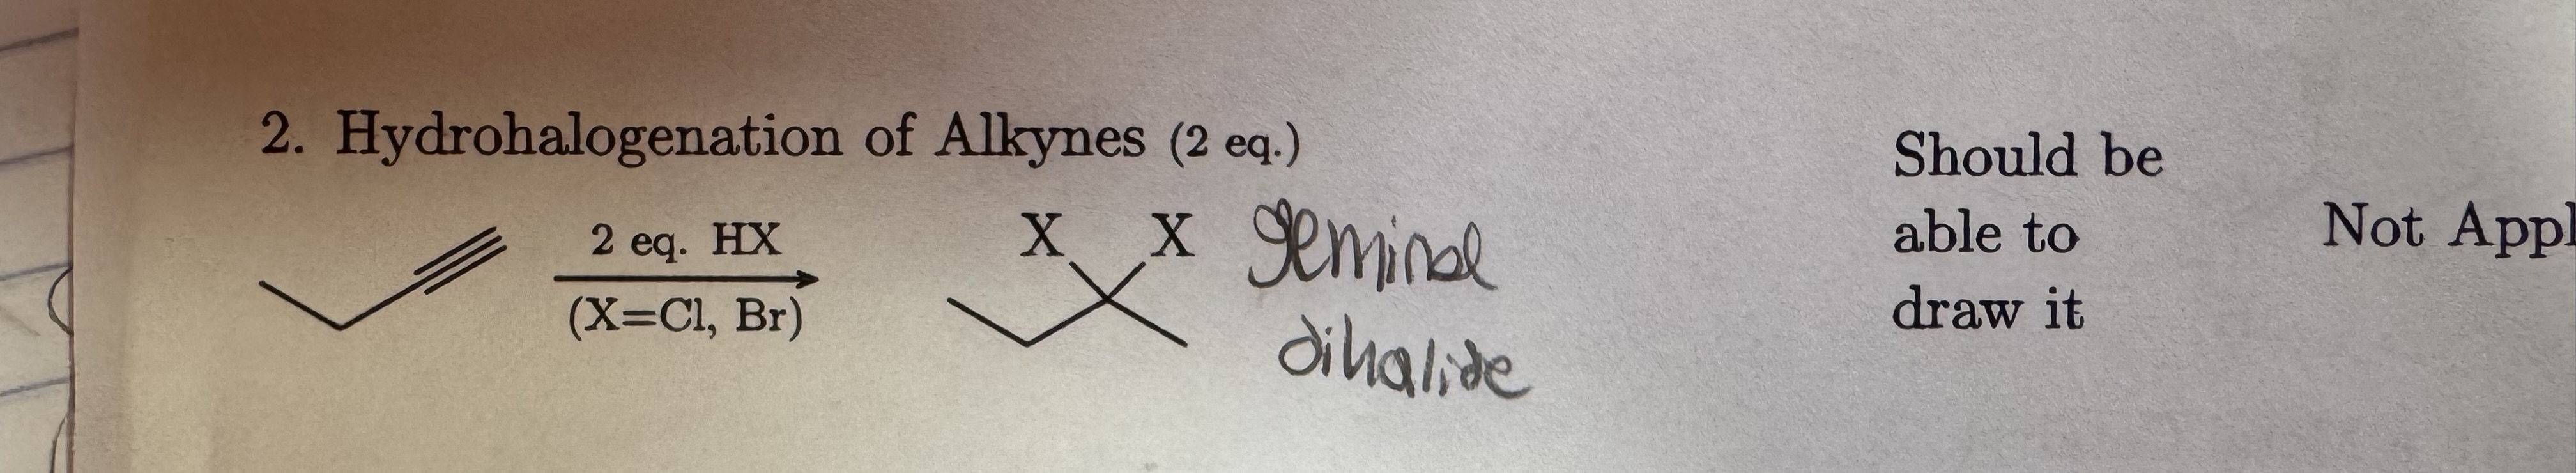 2. Hydrohalogenation of Alkynes (2 eq.)
2 eq. HX
(X=Cl, Br)
X X
geminal
dihalide
Should be
able to
draw it
Not Appl